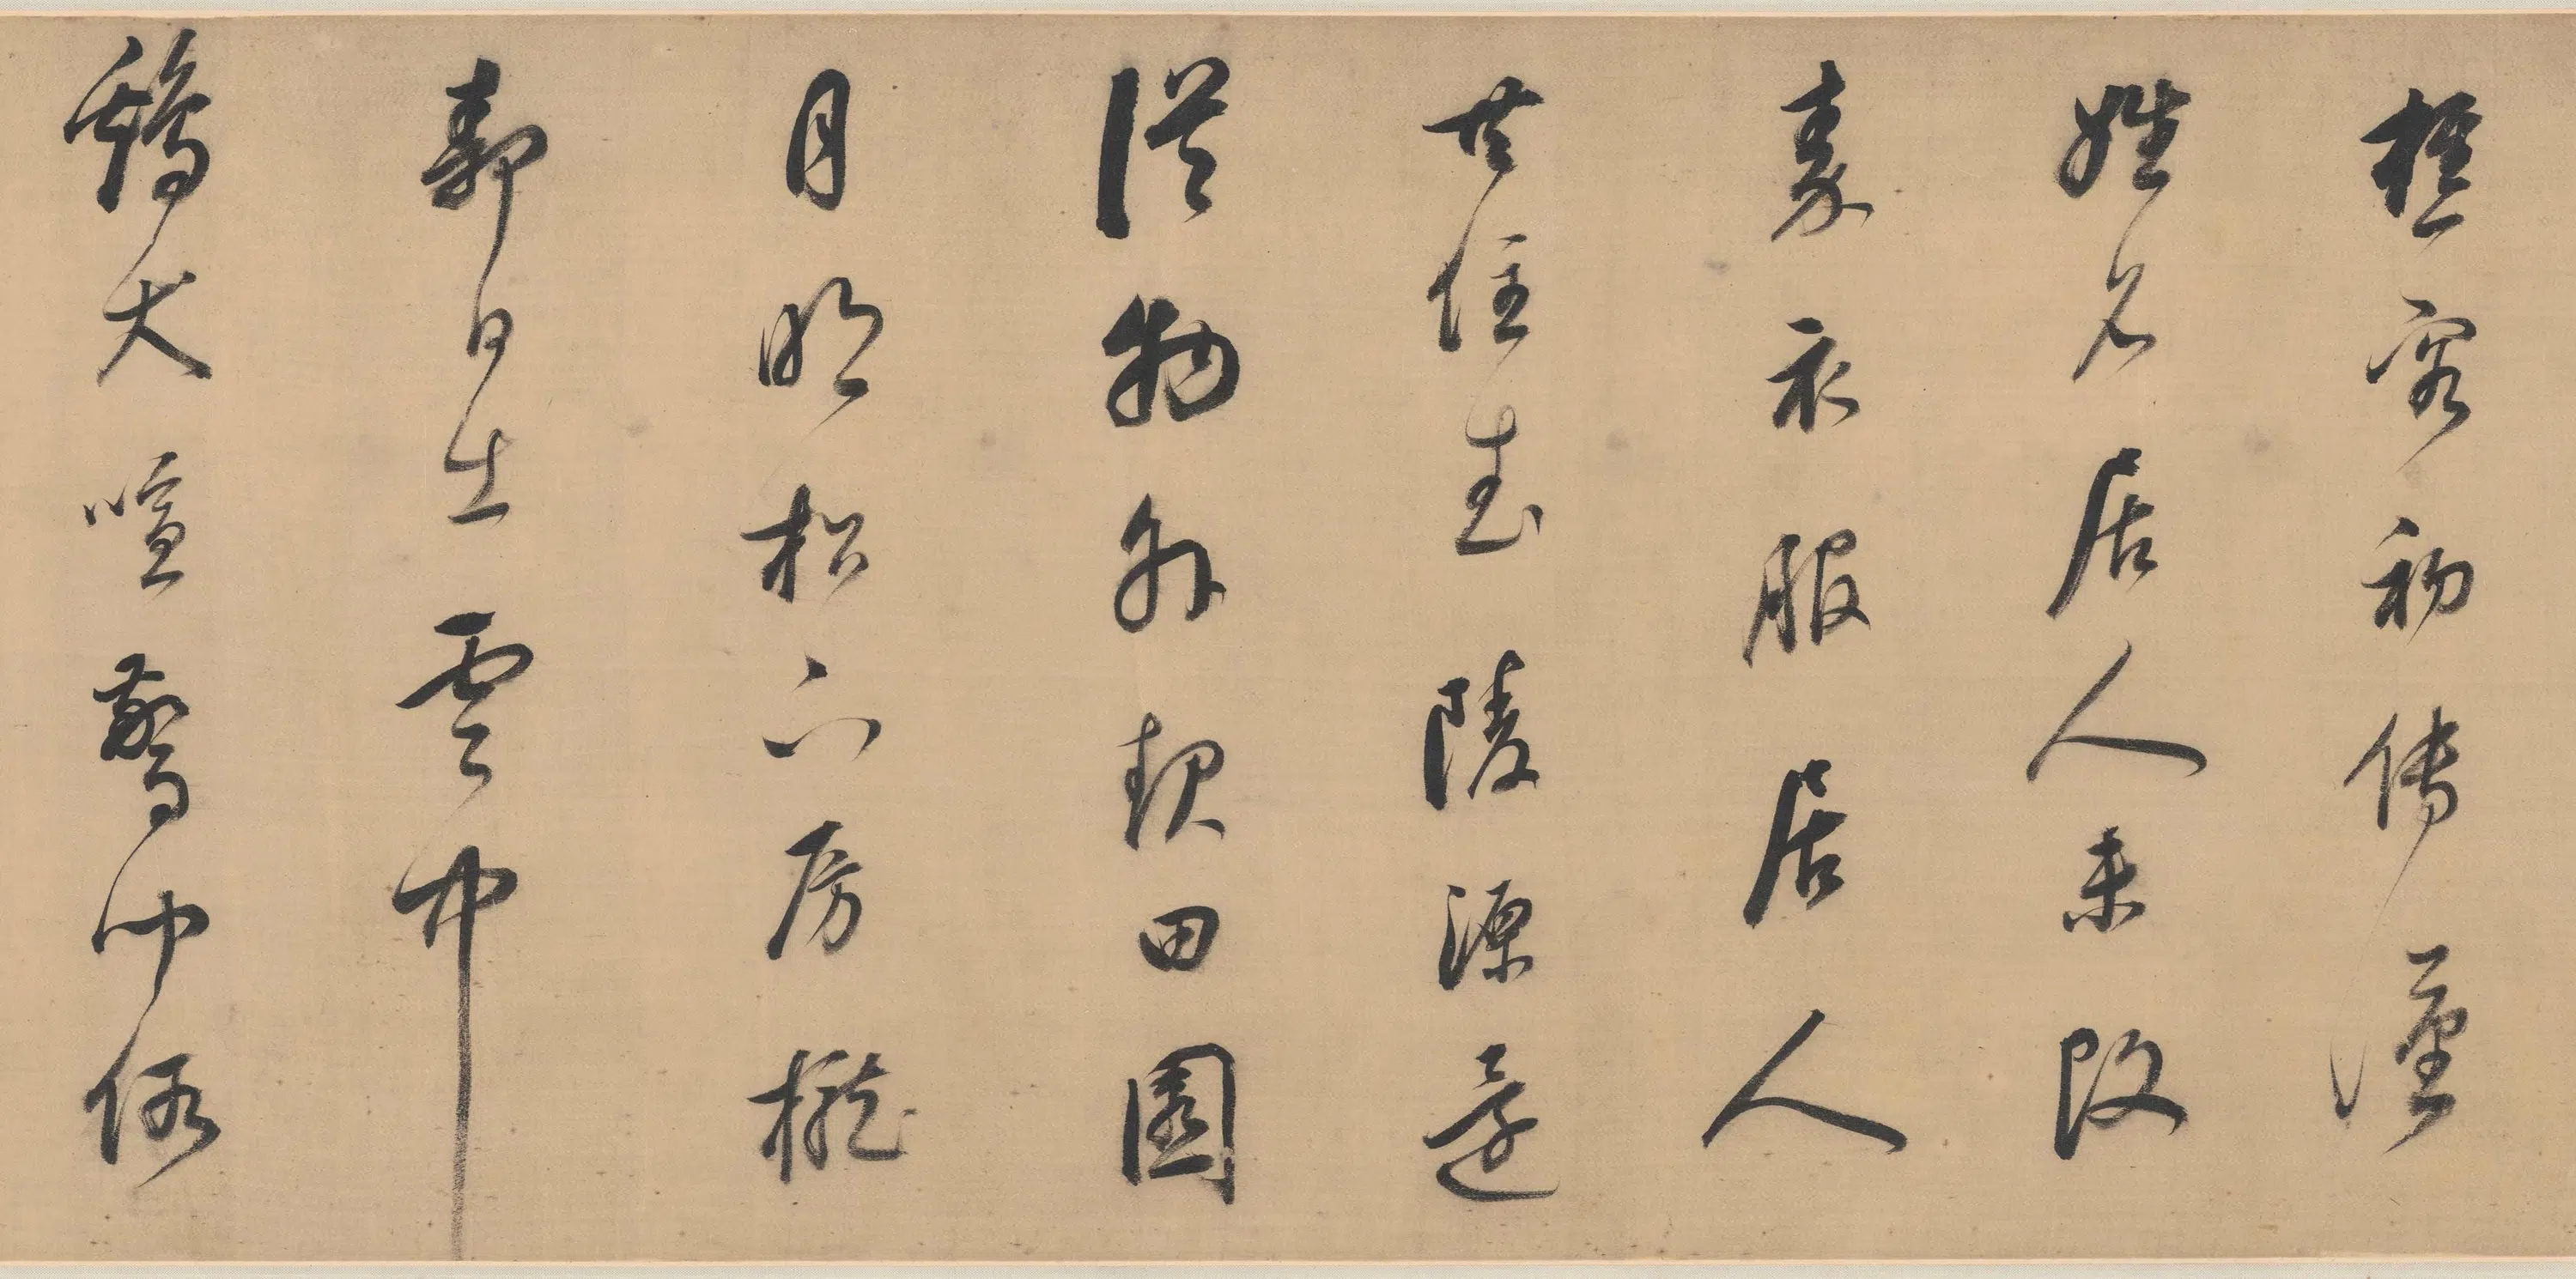 樵客初傳漢
姓名居人未改
秦衣服居人
共住武陵源還
從物外起田園
月明松下房櫳
靜日出雲中
鷄犬喧驚聞俗